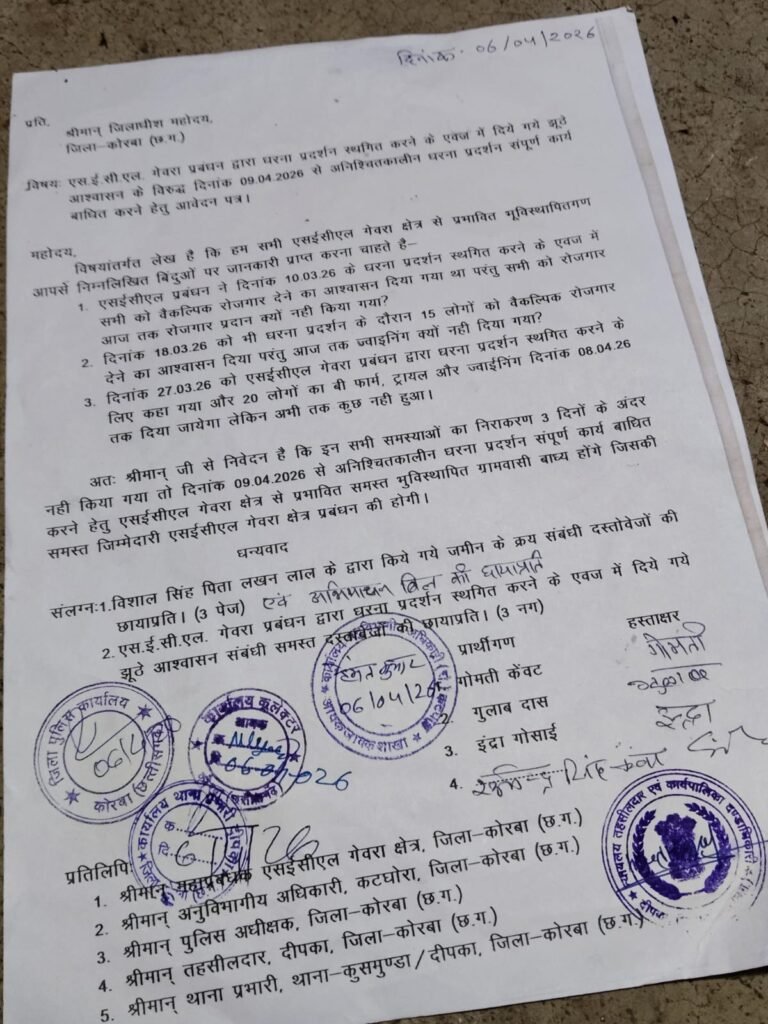 दिनांक: 06/04/2026
प्रति,
श्रीमान् जिलाधीश महोदय,
जिला–कोरबा (छ.ग.)
विषयः एस.ई.सी.एल. गेवरा प्रबंधन द्वारा धरना प्रदर्शन स्थगित करने के एवज में दिये गये झूठे
आश्वासन के विरुद्ध दिनांक 09.04.2026 से अनिश्चितकालीन धरना प्रदर्शन संपूर्ण कार्य
बाधित करने हेतु आवेदन पत्र।
महोदय,
विषयांतर्गत लेख है कि हम सभी एसईसीएल गेवरा क्षेत्र से प्रभावित भूविस्थापितगण
आपसे निम्नलिखित बिंदुओं पर जानकारी प्राप्त करना चाहते है–
1. एसईसीएल प्रबंधन ने दिनांक 10.03.26 के धरना प्रदर्शन स्थगित करने के एवज में
सभी को वैकल्पिक रोजगार देने का आश्वासन दिया गया था परंतु सभी को रोजगार
आज तक रोजगार प्रदान क्यों नही किया गया?
2. दिनांक 18.03.26 को भी धरना प्रदर्शन के दौरान 15 लोगों को वैकल्पिक रोजगार
देने का आश्वासन दिया परंतु आज तक ज्वाइनिंग क्यों नही दिया गया?
3. दिनांक 27.03.26 को एसईसीएल गेवरा प्रबंधन द्वारा धरना प्रदर्शन स्थगित करने के
लिए कहा गया और 20 लोगों का बी फार्म, ट्रायल और ज्वाईनिंग दिनांक 08.04.26
तक दिया जायेगा लेकिन अभी तक कुछ नही हुआ।
अतः श्रीमान् जी से निवेदन है कि इन सभी समस्याओं का निराकरण 3 दिनों के अंदर
नही किया गया तो दिनांक 09.04.2026 से अनिश्चितकालीन धरना प्रदर्शन संपूर्ण कार्य बाधित
करने हेतु एसईसीएल गेवरा क्षेत्र से प्रभावित समस्त भुविस्थापित ग्रामवासी बाध्य होंगे जिसकी
समस्त जिम्मेदारी एसईसीएल गेवरा क्षेत्र प्रबंधन की होगी।
धन्यवाद
संलग्नः1.विशाल सिंह पिता लखन लाल के द्वारा किये गये जमीन के क्रय संबंधी दस्तोवेजों की
छायाप्रति। (3 पेज) एवं की छायाप्रति
2. एस.ई.सी.एल. गेवरा प्रबंधन द्वारा धरना प्रदर्शन स्थगित करने के एवज में दिये गये
झूठे आश्वासन संबंधी समस्त दस्तावेजों की छायाप्रति। (3 नग)
प्रार्थीगण हस्ताक्षर
गोमती केंवट गोमती
2. गुलाब दास
3. इंद्रा गोसाई इन्द्रा
4. सिंह कंवर
06/04/26
जिला पुलिस कार्यालय
कोरबा (छत्तीसगढ़)
06/4
कार्यालय कलेक्टर
आवक
06-04-2026
(छत्तीसगढ़)
कार्यालय थाना प्रभारी
कार्यालय तहसीलदार एवं कार्यपालिका दण्डाधिकारी
प्रतिलिपिः
1. श्रीमान् महाप्रबंधक एसईसीएल गेवरा क्षेत्र, जिला–कोरबा (छ.ग.)
2. श्रीमान् अनुविभागीय अधिकारी, कटघोरा, जिला–कोरबा (छ.ग.)
3. श्रीमान् पुलिस अधीक्षक, जिला–कोरबा (छ.ग.)
4. श्रीमान् तहसीलदार, दीपका, जिला–कोरबा (छ.ग.)
5. श्रीमान् थाना प्रभारी, थाना–कुसमुण्डा/दीपका, जिला–कोरबा (छ.ग.)